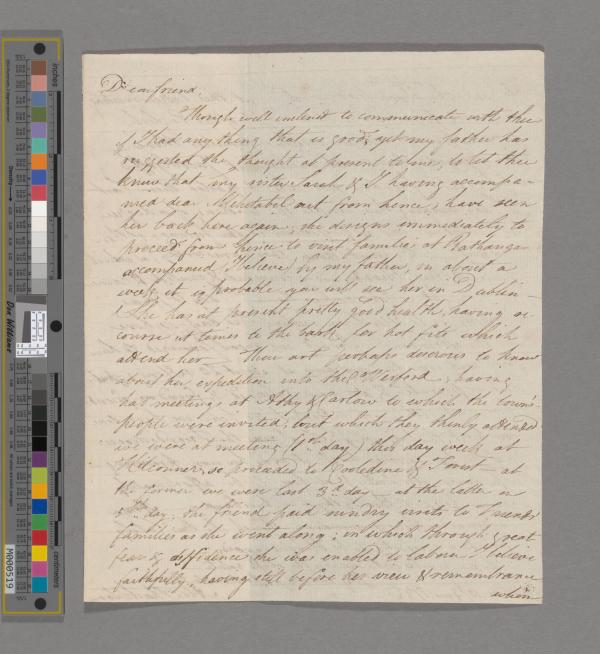 Dr. friend,
Though well inclined to communicate with thee
if I had any thing that is good, yet my father has
suggested the thought at present to me, to let thee
know that my sister Sarah & I having accompa-
nied dear Mehetabel out from hence, have seen
her back here again, she designs immediately to
proceed from hence to visit families at Rathangan
accompanied I believe by my father, in about a
week it is probable you will see her in Dublin
She has at present pretty good health, having re-
course at times to the bath, for hot fits which
attend her Thou art perhaps desirous to know
about her expedition into the Co Wexford, having
had meetings at Athy & Carlow to which the town's
people were invited, but which they thinly attended
we were at meeting (1st day) this day week at
Kilconner, so proceeded to Cooledine & Forest at
the former we were last 3d day at the latter on
5th day, the friend paid sundry visits to Friends'
families as she went along; in which through great
fear & diffidence she was enabled to labour I believe
faithfully, having still before her view & remembrance
when
inches
centimeters
Don Williams
Density
M000519